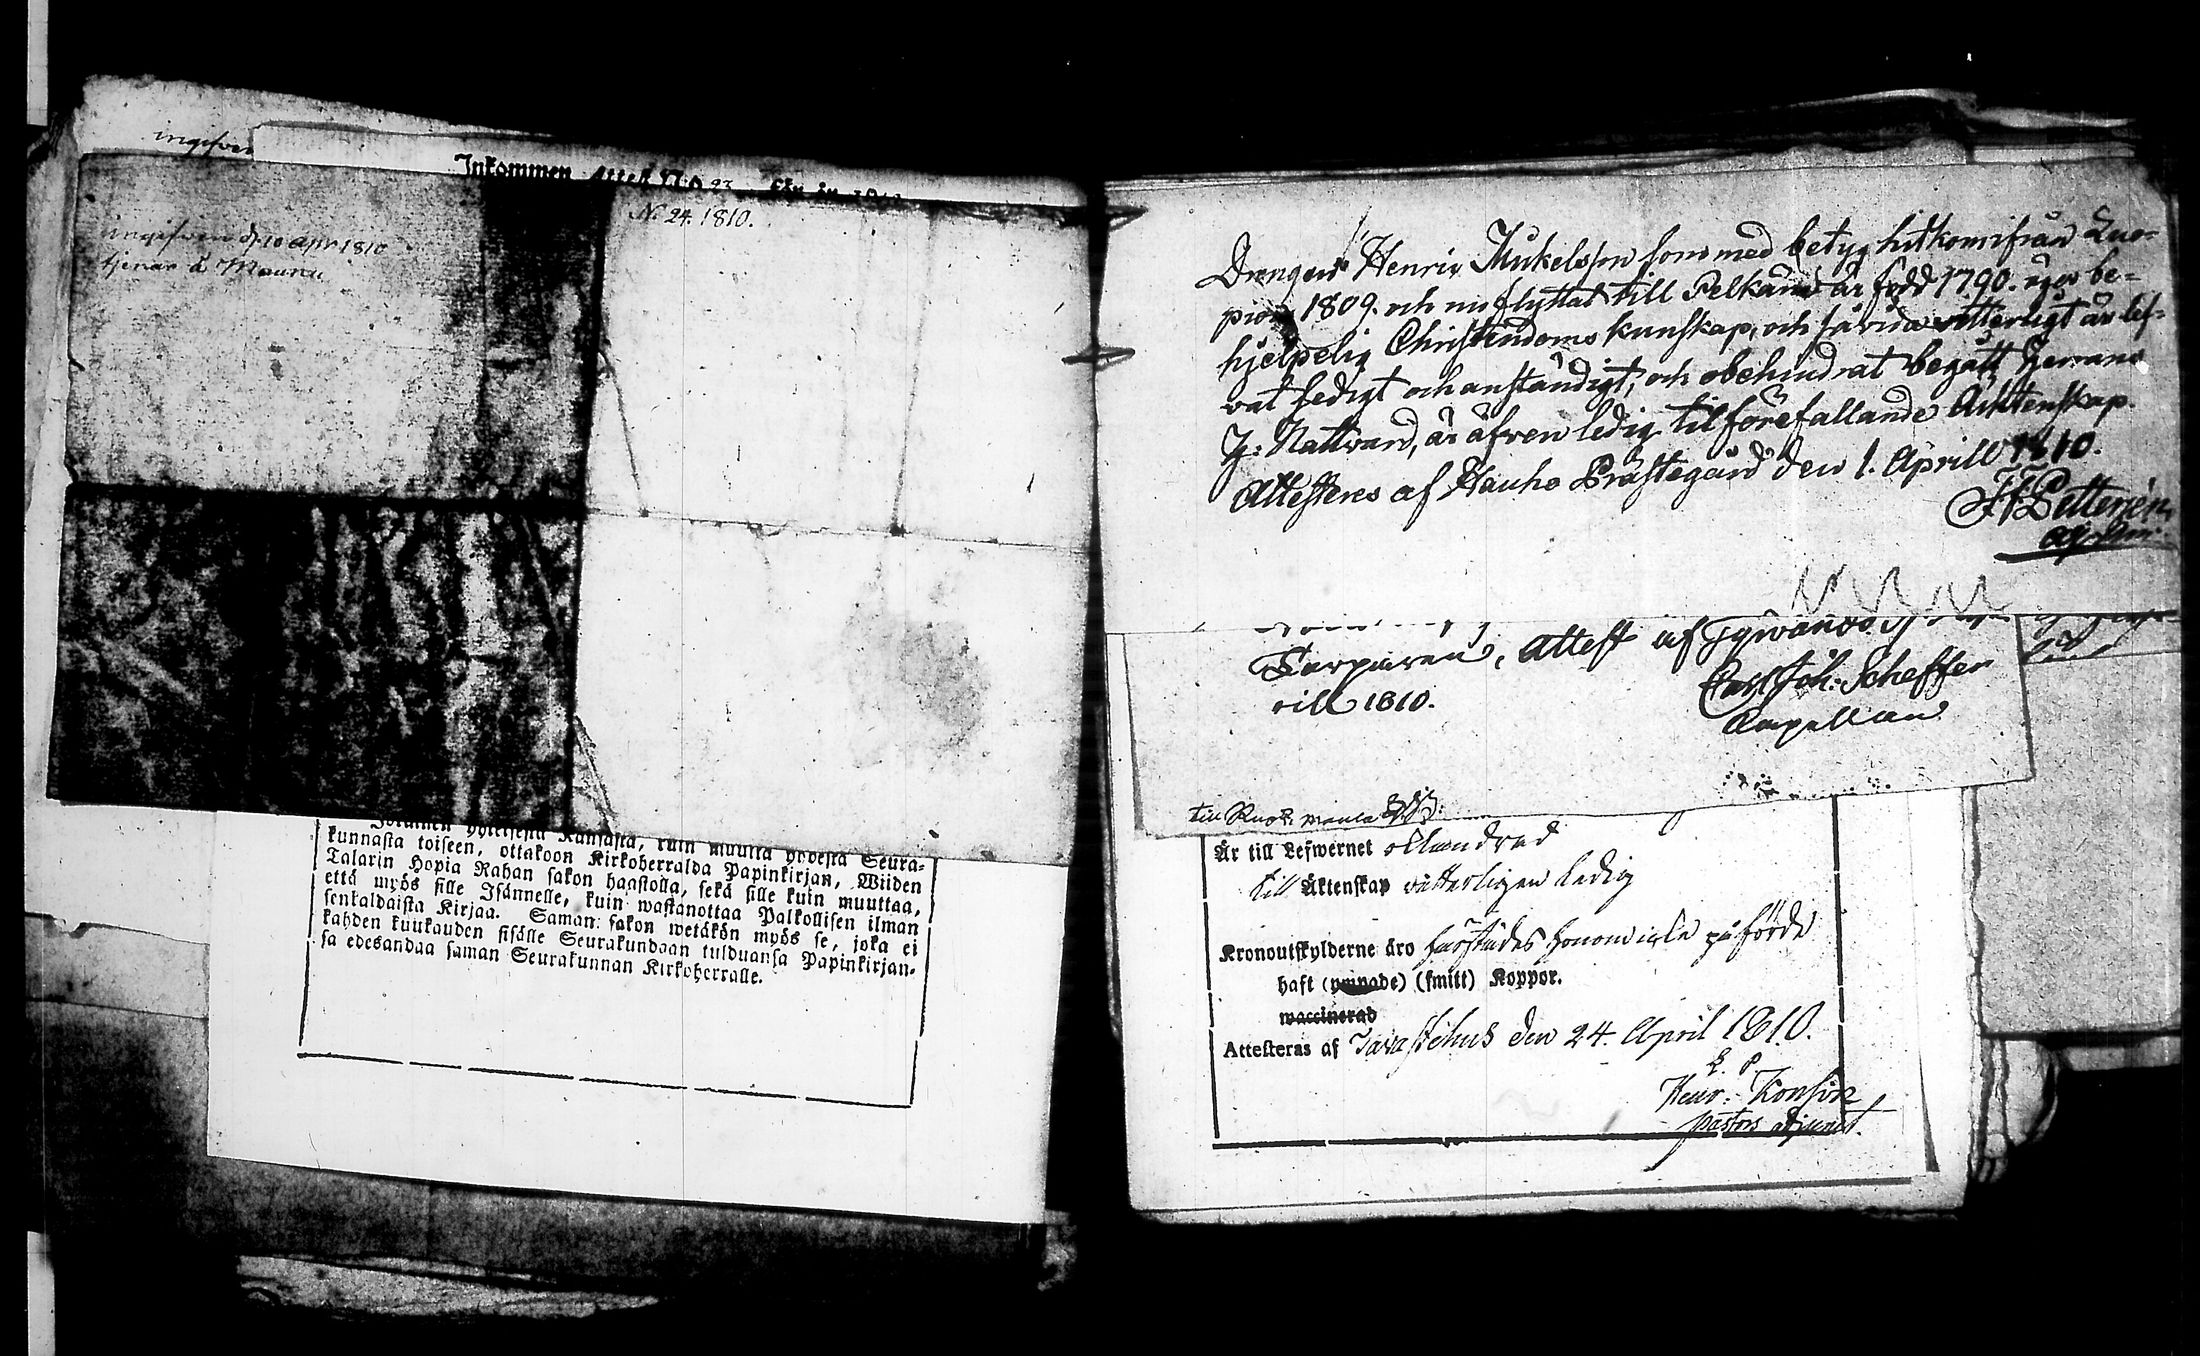 ingifven
Inkommen Attest N:o 23
N: 24. 1810.
ingifven d. 10 apr 1810
tjenar å Maunu
kunnasta toiseen, ottakoon Kirkoherralda Papinkirjan, Wiiden
Talarin Hopia Rahan sakon haastolla, sekä sille kuin muuttaa,
että myös sille Isännelle, kuin wastanottaa Palkollisen ilman
senkaldaista Kirjaa. Saman sakon wetäkön myös se, joka ei
kahden kuukauden sisälle Seurakundaan tulduansa Papinkirjan-
sa edesandaa saman Seurakunnan Kirkoherralle.
Drengen Henric Mickelsson som med betyg hitkom ifrån Luo-
piois 1809. och nu flyttat till Pelkäne är född 1790. äger be-
hjelpelig Christendoms kunskap, och såvida vitterligt är lef-
vat fredigt och anständigt, och obehindrat begått Herrans
H: Nattvard, är äfven ledig til förefallande Äktenskap
Attesteras af Hauho Prästegård den 1. Aprill 1810.
attest af
rill 1810.
Carl Joh: Scheffer
Capellan
Är till Lefwernet oklandrad
till Äktenskap vitterligen ledig
Kronoutskylderne äro härstädes honom icke påförde
haft (ympade) (smitt) Koppor.
waccinerad
Attesteras af Tavastehus den 24. April 1810.
Pastors adjunct.